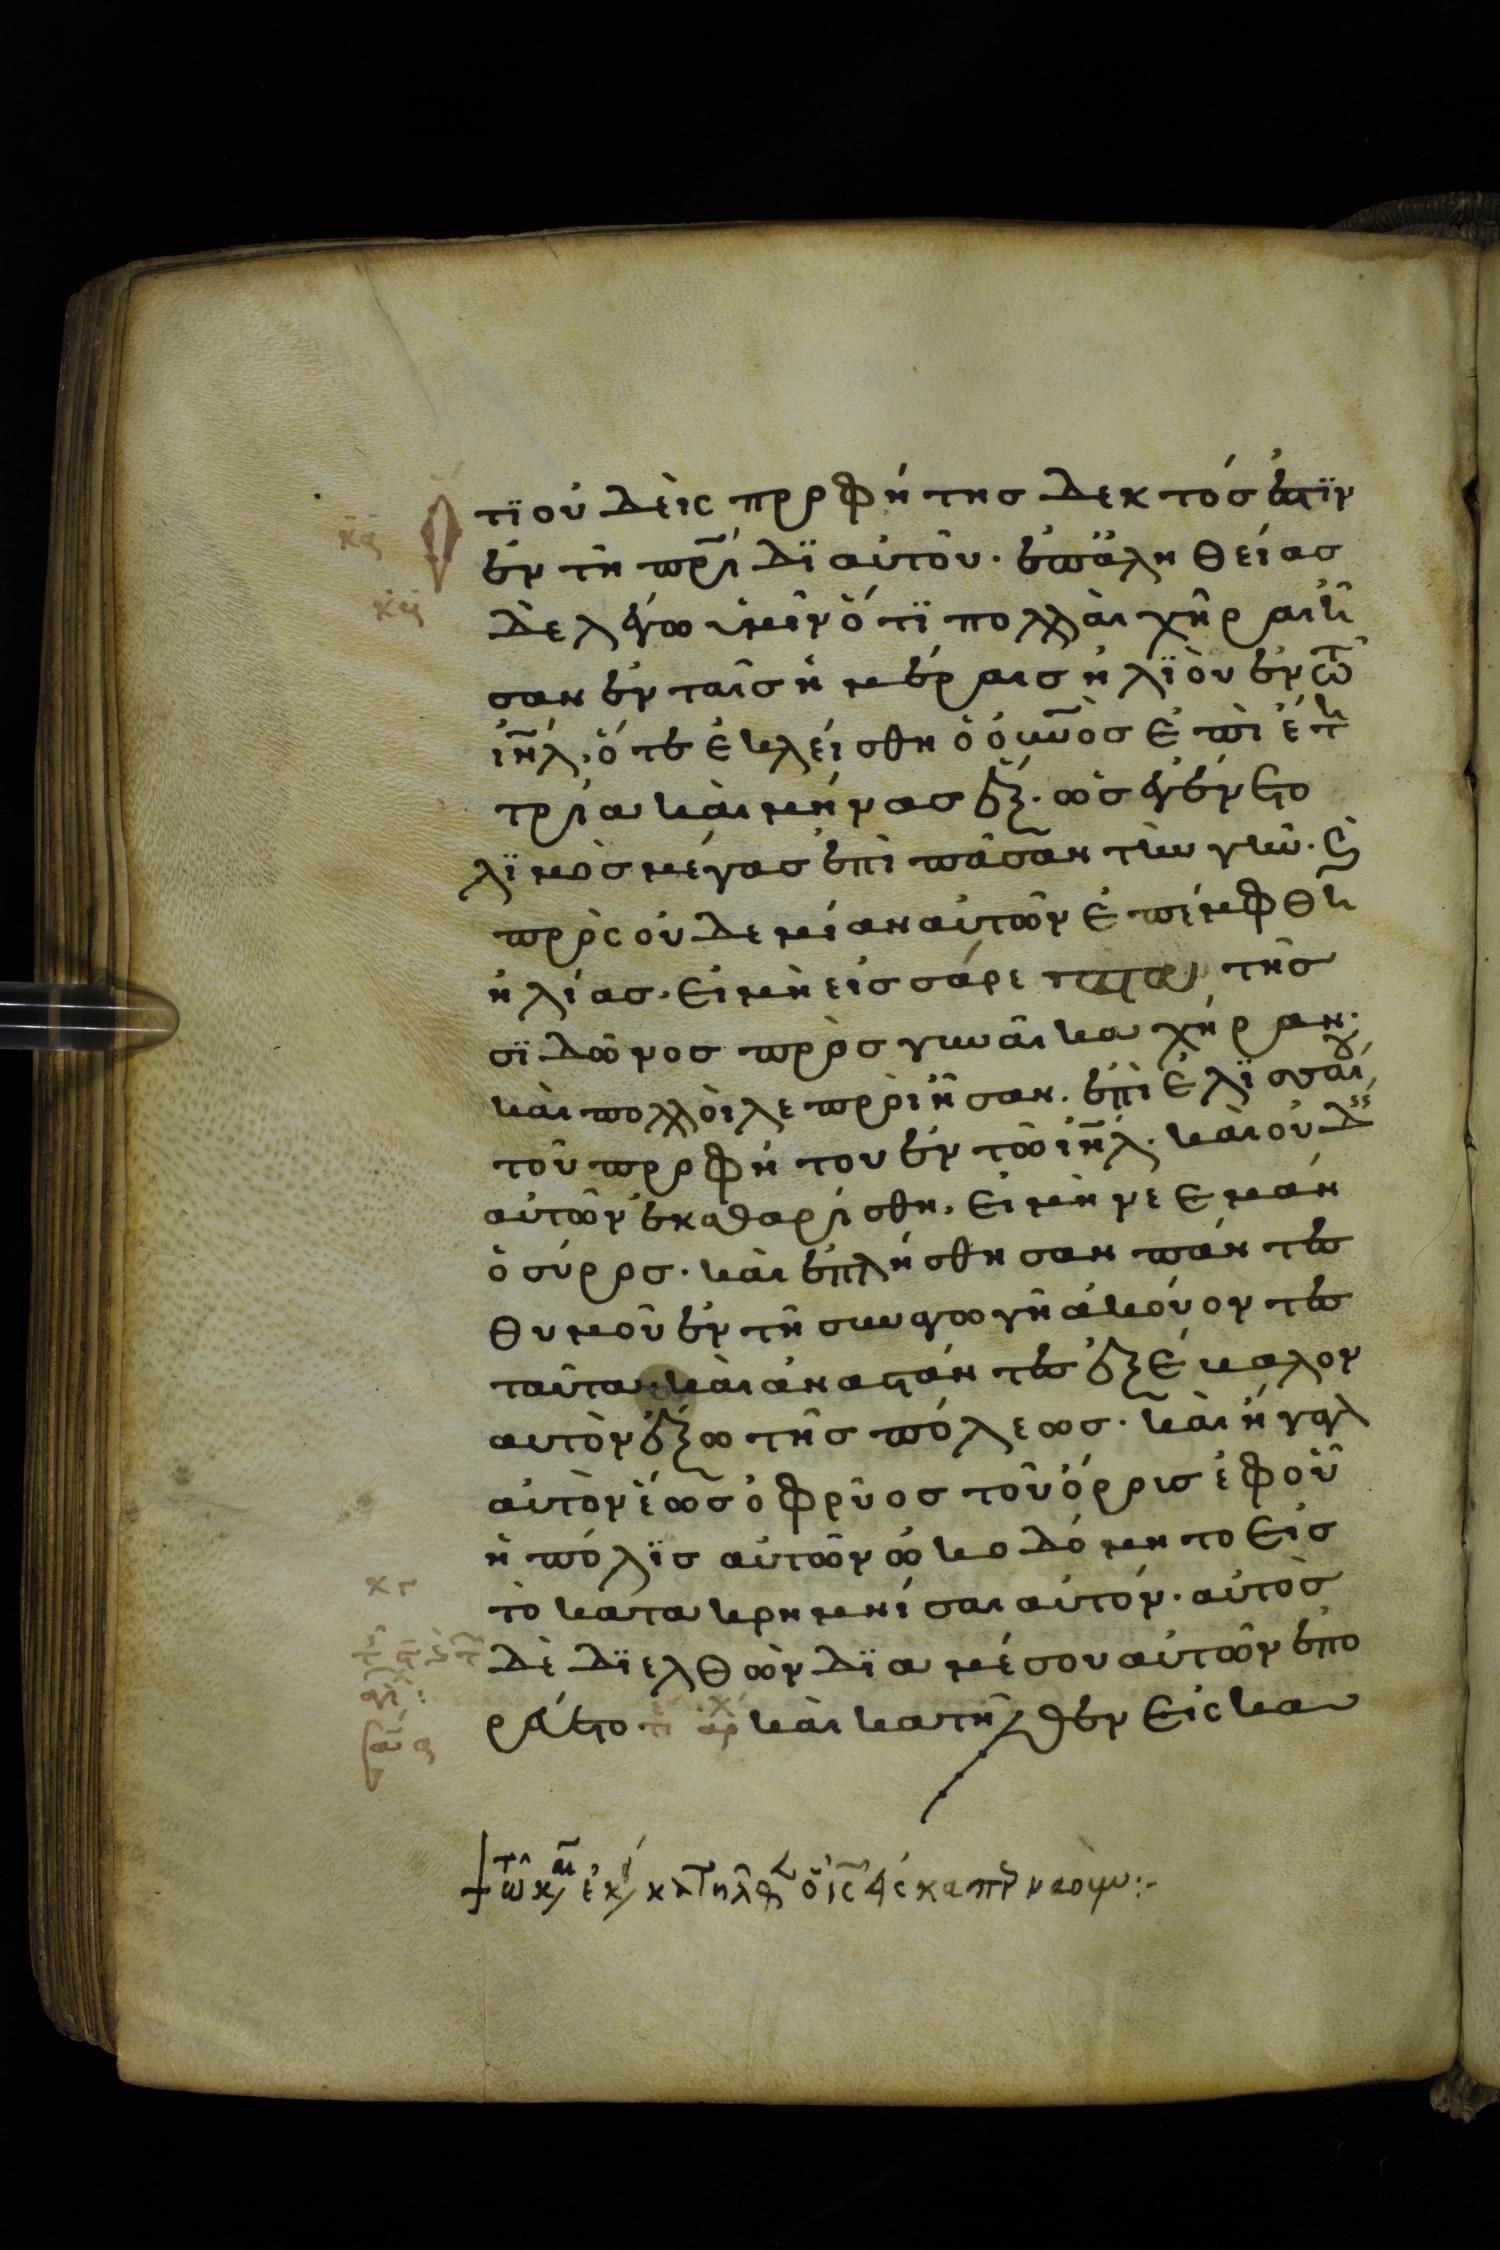 Ὅτϊ οὐδὲις προφήτης δεκτός ἐστϊν
ἐν τῆ πρ̅ίδϊ αὐτοῦ· ἐπ' ἀληθείας
δε λέγω ὑμῖν ὅτϊ πολλὰι χῆραι ἦ
σαν ἐν ταῖς ἡμέραις ἠλϊοὺ ἐν τῶ
ιη̅λ· ὅτε ἐκλείσθη ὁ οὐν̅ὸς ἐπὶ ἔτη
τρία καὶ μῆνας ἕξ· ὡς ἐγένετο
λϊμὸς μέγας ἐπὶ πᾶσαν τὴν γῆν· καὶ
πρὸς οὐδεμίαν αὐτῶν ἐπέμφθη
ἠλίας· εἰ μὴ εἰς σάρεπτα τῆς
σϊδῶνος πρὸς γυναῖκα χήραν·
καὶ πολλοὶ λεπροὶ ἦσαν· ἐπὶ ἐλϊσσαίου
τοῦ προφήτου ἐν τῶ ιη̅λ· καὶ οὐδεὶς
αὐτῶν ἐκαθαρίσθη· εἰ μὴ νεεμὰν
ὁ σύρος· καὶ ἐπλήσθησαν πάντες
θυμοῦ ἐν τῆ συναγωγῆ ἀκούοντες
ταῦτα· καὶ ἀναστάντες ἐξέβαλον
αὐτὸν ἔξω τῆς πόλεως· καὶ ἤγαγον
αὐτὸν ἕως ὀφρύος τοῦ ὄρους ἐφ' οὗ
ἡ πόλϊς αὐτῶν ὠκοδόμητο εἰς
τὸ κατακρημνίσαι αὐτόν· αὐτὸς
δὲ δϊελθὼν δϊα μέσου αὐτῶν ἐπο
ρεύετο τέ αρχ καὶ κατῆλθεν εἰς κα
τῶ κ/ ἐκ/ κατῆλθ ὁ ι̅ς̅ εἰς καπερναούμ:-